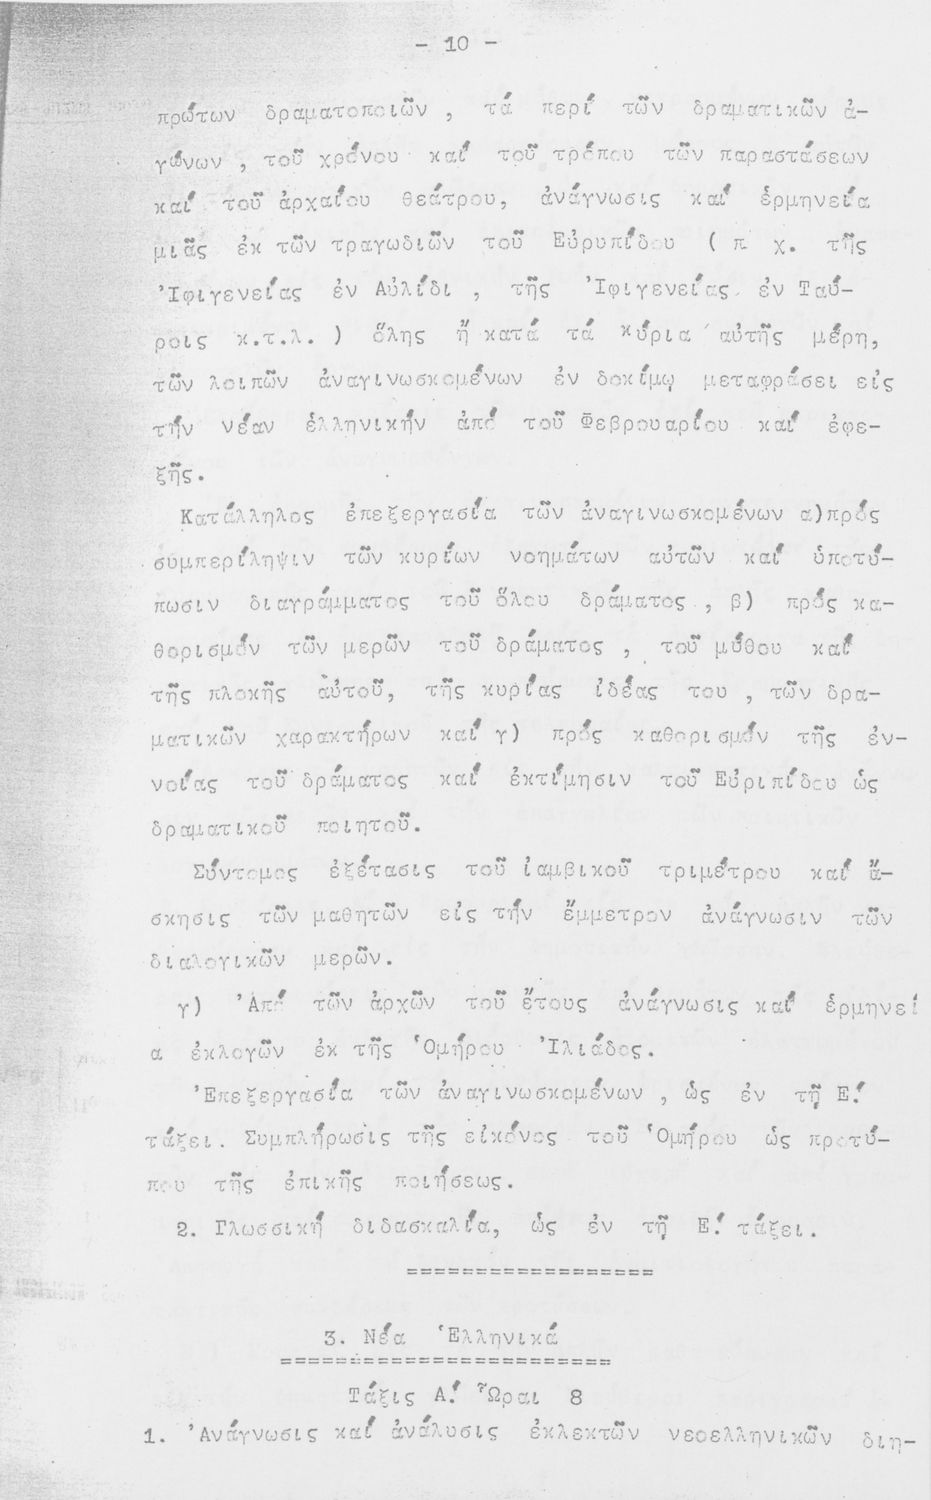 - 10 -
πρώτων δραματοποιῶν , τά περί τῶν δραματικῶν ἀ-
γώνων , τοῦ χρόνου καί τοῦ τρόπου τῶν παραστάσεων
καί τοῦ ἀρχαίου θεάτρου, ἀνάγνωσις καί ἑρμηνεία
μιᾶς ἐκ τῶν τραγωδιῶν τοῦ Εὐρυπίδου ( π χ. τῆς
'Ιφιγενείας ἐν Αὐλίδι , τῆς 'Ιφιγενείας ἐν Ταύ-
ροις κ.τ.λ. ) ὅλης ἤ κατά τά κύρια αὐτῆς μέρη,
τῶν λοιπῶν ἀναγινωσκομένων ἐν δοκίμῳ μεταφράσει εἰς
τήν νέαν ἑλληνικήν ἀπό τοῦ Φεβρουαρίου καί ἐφε-
ξῆς.
Κατάλληλος ἐπεξεργασία τῶν ἀναγινωσκομένων α)πρός
σύμπερίληψιν τῶν κυρίων νοημάτων αὐτῶν καί ὑποτύ-
πωσιν διαγράμματος τοῦ ὅλου δράματος , β) πρός κα-
θορισμόν τῶν μερῶν τοῦ δράματος , τοῦ μύθου καί
τῆς πλοκῆς αὐτοῦ, τῆς κυρίας ἰδέας του , τῶν δρα-
ματικῶν χαρακτήρων καί γ) πρός καθορισμόν τῆς ἐν-
νοίας τοῦ δράματος καί ἐκτίμησιν τοῦ Εὐριπίδου ὡς
δραματικοῦ ποιητοῦ.
Σύντομος ἐξέτασις τοῦ ἰαμβικοῦ τριμέτρου καί ἄ-
σκησις τῶν μαθητῶν εἰς τήν ἔμμετρον ἀνάγνωσιν τῶν
διαλογικῶν μερῶν.
γ) 'Από τῶν ἀρχῶν τοῦ ἔτους ἀνάγνωσις καί ἑρμηνεί
α ἐκλογῶν ἐκ τῆς Ὁμήρου 'Ιλιάδος.
'Επεξεργασία τῶν ἀναγινωσκομένων , ὡς ἐν τῇ Ε!
τάξει. Συμπλήρωσις τῆς εἰκόνος τοῦ Ὁμήρου ὡς προτύ-
που τῆς ἐπικῆς ποιήσεως.
2. Γλωσσική διδασκαλία, ὡς ἐν τῇ Ε! τάξει.
===================
3. Νέα Ἑλληνικά
=========================
Τάξις Α! Ὧραι 8
1. 'Ανάγνωσις καί ἀνάλυσις ἐκλεκτῶν νεοελληνικῶν διη-